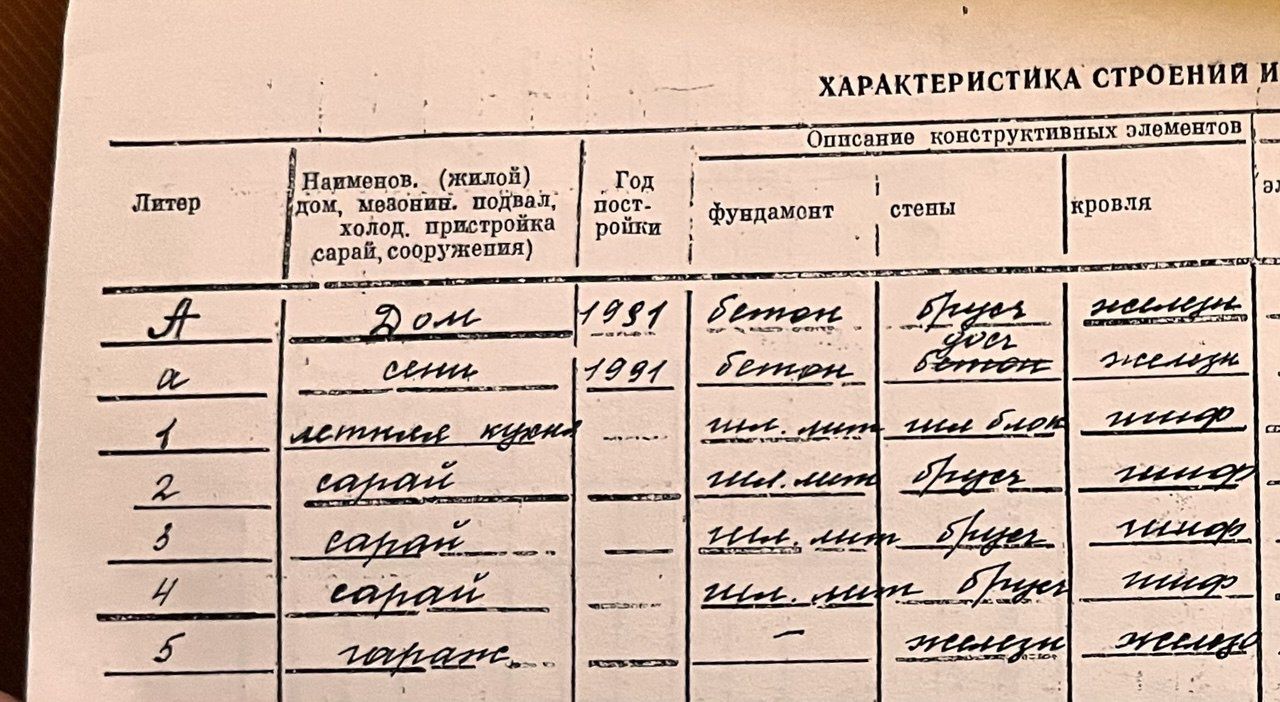 ХАРАКТЕРИСТИКА СТРОЕНИЙ И
Описание конструктивных элементов
Литер
Наименов. (жилой)
дом, мезонин. подвал,
холод. пристройка
сарай, сооружения)
Год
пост-
ройки
фундамонт
стены
кровля
А Дом 1991 бетон брусч железн
а сени 1991 бетон бетон железн
1 летняя кухня шл. лит шл блок шиф
2 сарай шл. лит брусч шиф
3 сарай шл. лит брусч шиф
4 сарай шл. лит брусч шиф
5 гараж — железн железо